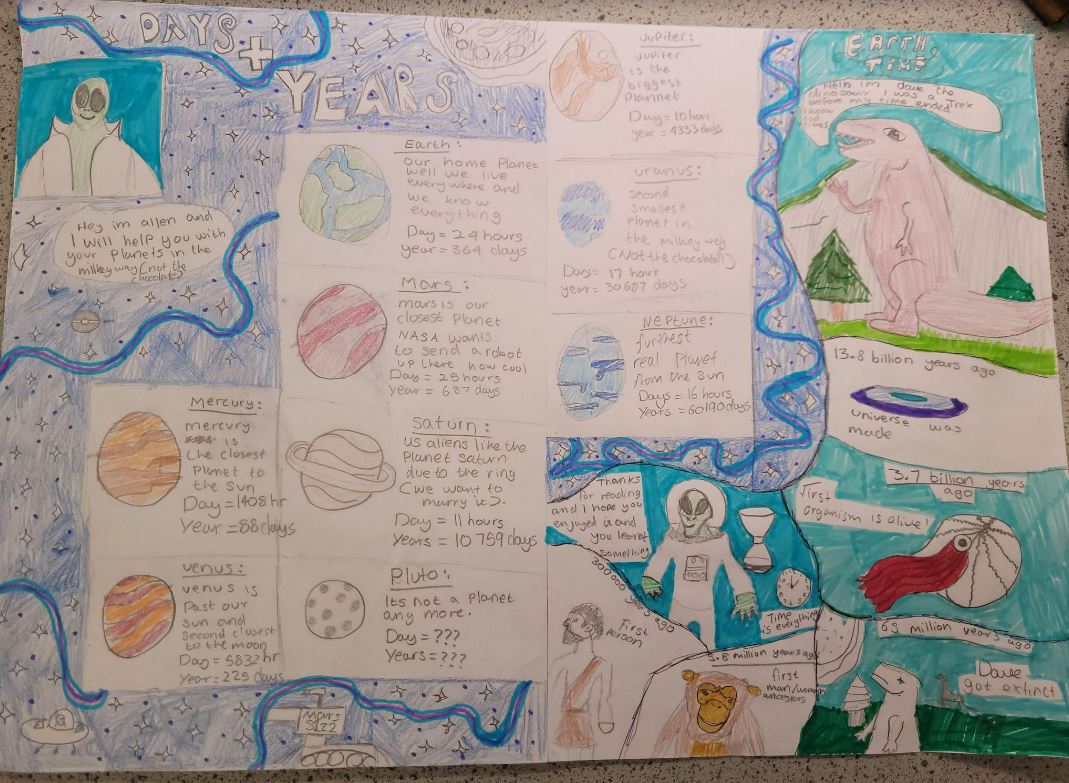 DAYS
+
YEARS
Hey im allen and
I will help you with
your Planets in the
milkey way (not the
chocolate)
Earth:
our home Planet
well we live
everywhere and
we know
everything
Day = 24 hours
year = 364 days
Mars:
mars is our
closest Planet
NASA wants
to send a robot
up there how cool
Day = 25 hours
Year = 687 days
Mercury:
mercury
is
the closest
Planet to
the sun
Day = 1408 hr
Year = 88 days
Saturn:
us aliens like the
Planet saturn
due to the ring
(we want to
marry it).
Day = 11 hours
Years = 10 759 days
Venus:
venus is
Past our
sun and
second closest
to the moon
Day = 5832 hr
Year = 225 days
Pluto:
Its not a planet
any more.
Day = ???
Years = ???
mars
Jupiter:
Jupiter
is the
biggest
Plannet
Day = 10 hour
year = 4333 days
uranius:
second
smallest
planet in
the milkey way
(Not the chocolate!)
Day = 17 hour
year = 30687 days
Neptune:
furthest
real Planet
from the sun
Days = 16 hours
Years = 60190 days
Thanks
for reading
and I hope you
enjoyed it and
you learnt
something
Time
is everything
EARTH
TIME
Hello im dave the
dinosaur I was a Trex
before my time ended
I know
sad
times
13.8 billion years ago
universe was
made
3.7 billion years
ago
First
organism is alive!
65 million years ago
Dave
got extinct
300 000 years ago
First
Person
5.8 million years ago
first
man/woman
ancestors